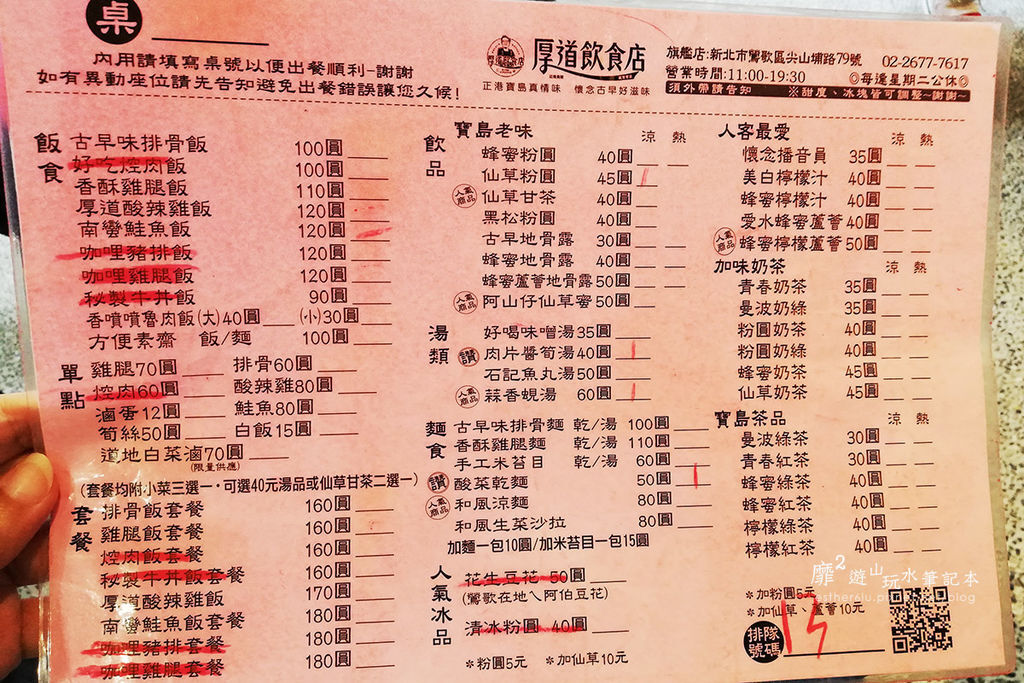 桌
內用請填寫桌號以便出餐順利-謝謝
如有異動座位請先告知避免出餐錯誤讓您久候!
厚道飲食店
正港寶島真情味 懷念古早好滋味
旗艦店:新北市鶯歌區尖山埔路79號 02-2677-7617
營業時間:11:00-19:30 ◎每逢星期二公休◎
須外帶請告知 ※甜度、冰塊皆可調整~謝謝~
飯食
古早味排骨飯 100圓
好吃控肉飯 100圓
香酥雞腿飯 110圓
厚道酸辣雞飯 120圓
南蠻鮭魚飯 120圓
咖哩豬排飯 120圓
咖哩雞腿飯 120圓
秘製牛丼飯 90圓
香噴噴魯肉飯(大)40圓 (小)30圓
方便素齋 飯/麵 100圓
單點
雞腿70圓 排骨60圓
控肉60圓 酸辣雞80圓
滷蛋12圓 鮭魚80圓
筍絲50圓 白飯15圓
道地白菜滷70圓
(限量供應)
(套餐均附小菜三選一·可選40元湯品或仙草甘茶二選一)
套餐
排骨飯套餐 160圓
雞腿飯套餐 160圓
控肉飯套餐 160圓
秘製牛丼飯套餐 160圓
厚道酸辣雞飯 170圓
南蠻鮭魚飯套餐 180圓
咖哩豬排套餐 180圓
咖哩雞腿套餐 180圓
飲品
寶島老味 涼 熱
蜂蜜粉圓 40圓
仙草粉圓 45圓
人氣商品 仙草甘茶 40圓
黑松粉圓 40圓
古早地骨露 30圓
蜂蜜地骨露 40圓
蜂蜜蘆薈地骨露50圓
人氣商品 阿山仔仙草蜜50圓
湯類
好喝味噌湯35圓
讚 肉片醬筍湯40圓
石記魚丸湯50圓
人氣商品 蒜香蜆湯 60圓
麵食
古早味排骨麵 乾/湯 100圓
香酥雞腿麵 乾/湯 110圓
手工米苔目 乾/湯 60圓
讚 酸菜乾麵 50圓
人氣商品 和風涼麵 80圓
和風生菜沙拉 80圓
加麵一包10圓/加米苔目一包15圓
人氣冰品
花生豆花 50圓
(鶯歌在地ㄟ阿伯豆花)
清冰粉圓 40圓
*粉圓5元 *加仙草10元
人客最愛 涼 熱
懷念播音員 35圓
美白檸檬汁 40圓
蜂蜜檸檬汁 40圓
愛水蜂蜜蘆薈 40圓
人氣商品 蜂蜜檸檬蘆薈 50圓
加味奶茶 涼 熱
青春奶茶 35圓
曼波奶綠 35圓
粉圓奶茶 40圓
粉圓奶綠 40圓
蜂蜜奶茶 45圓
仙草奶茶 45圓
寶島茶品 涼 熱
曼波綠茶 30圓
青春紅茶 30圓
蜂蜜綠茶 40圓
蜂蜜紅茶 40圓
檸檬綠茶 40圓
檸檬紅茶 40圓
靡2遊山玩水筆記本
*加粉圓5元
*加仙草、蘆薈10元
排隊號碼 13